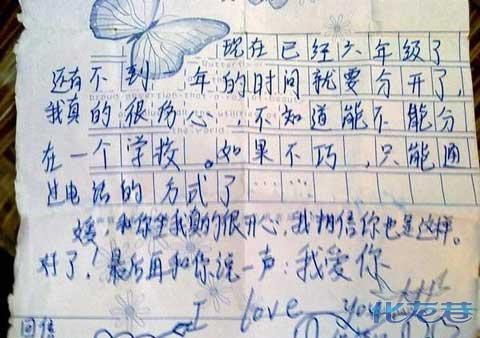 现在已经六年级了
还有不到一年的时间就要分开了,
我真的很伤心,不知道能不能分
在一个学校。如果不巧,只能通
过电话的方式了……
媛,和你坐我真的很开心,我相信你也是这样。
好了!最后再和你说一声:我爱你
I love you
化龙巷
回信